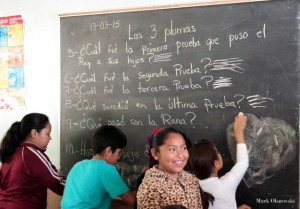 13-03-15
Los 3 plumas
5-¿Cuál fué la Primera prueba que puso el
Rey a sus hijos?
6-¿Cuál fué la segunda Prueba?
7-¿Cuál fué la tercera Prueba?
8-¿Qué sucedió en la última Prueba?
9-¿Qué pasó con la Rana?
Mark Olszewski